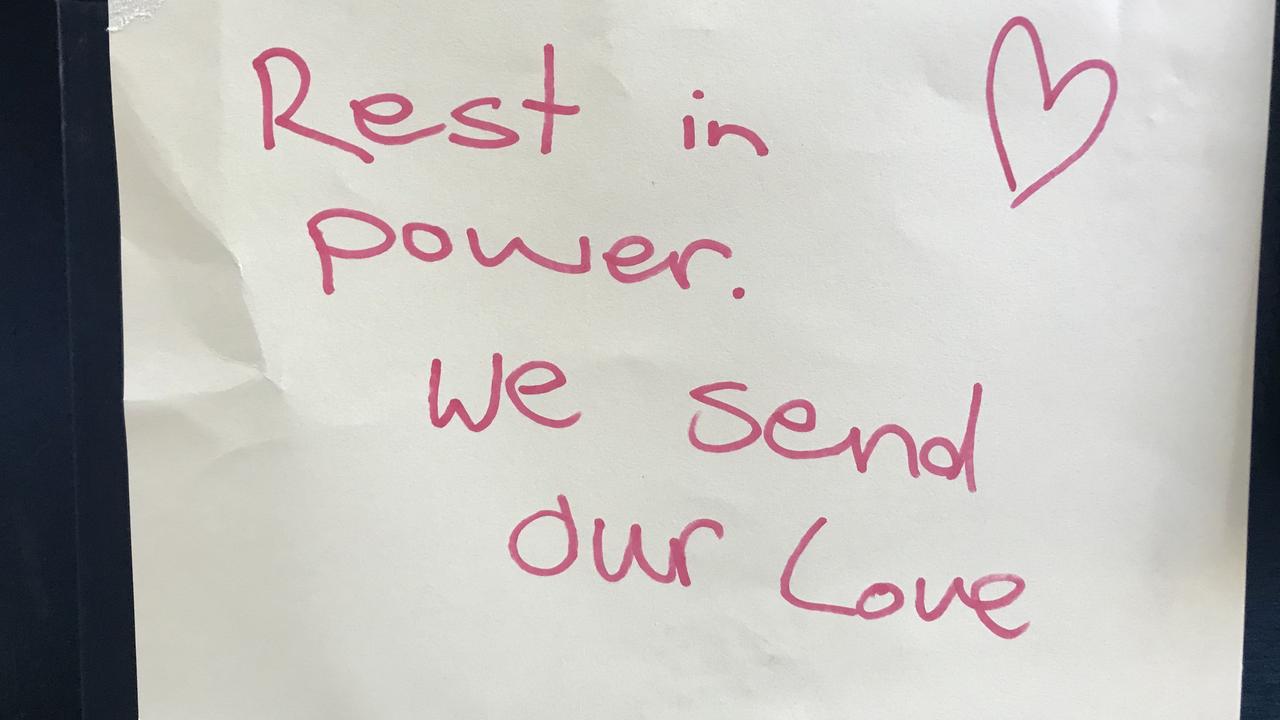 Rest in
power.
We send
our Love